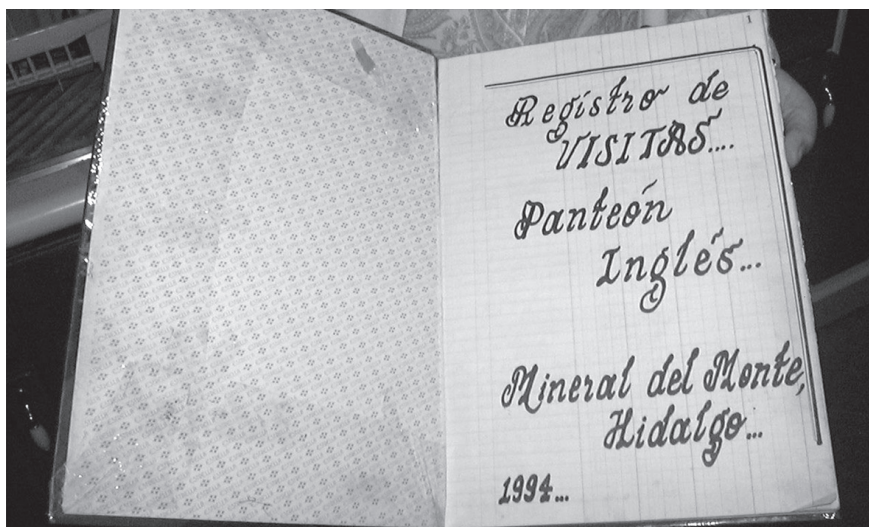 1
Registro de
VISITAS....
Panteón
Inglés...
Mineral del Monte,
Hidalgo...
1994...